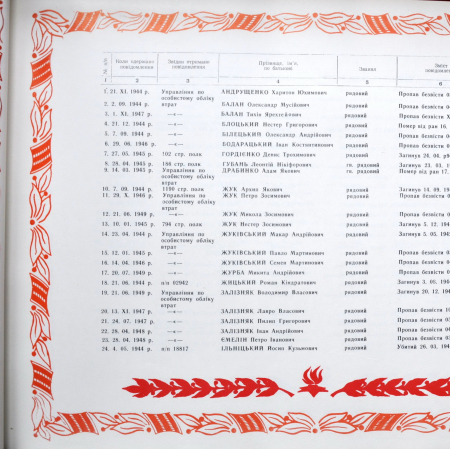 № п/п Коли одержано повідомлення Звідки отримане повідомлення Прізвище, ім'я, по батькові Звання Зміст повідомлення
1 2 3 4 5 6
1. 21. XI. 1946 р. Управління по особистому обліку втрат АНДРУЩЕНКО Харитон Юхимович рядовий Пропав безвісти
2. 2. 09. 1944 р. —«— БАЛАН Олександр Мусійович рядовий Пропав безвісти
3. 1. XI. 1947 р. —«— БАЛАН Тихін рядовий Пропав безвісти
4. 21. 12. 1944 р. —«— БЛОЦЬКИЙ Нестор Григорович рядовий Помер від ран 16.
5. 7. 09. 1944 р. —«— БІЛЕЦЬКИЙ Олександр Андрійович рядовий Пропав безвісти
6. 29. 06. 1946 р. —«— БОДАРАЦЬКИЙ Іван Костянтинович рядовий Пропав безвісти
7. 27. 05. 1945 р. 102 стр. полк ГОРДІЄНКО Денис Трохимович рядовий Загинув 26. 04.
8. 28. 04. 1945 р. 188 стр. полк ГУБАНЬ Леонтій Никифорович гв. рядовий Загинув 23. 03.
9. 14. 03. 1945 р. Управління по особистому обліку втрат ДРАБИНКО Адам Якович гв. рядовий Помер від ран 17.
10. 7. 09. 1944 р. 1199 стр. полк ЖУК Архип Якович рядовий Загинув 14. 09. 194
11. 29. X. 1946 р. Управління по особистому обліку втрат ЖУК Петро Зосимович рядовий Пропав безвісти
12. 21. 06. 1949 р. —«— ЖУК Микола Зосимович рядовий Пропав безвісти
13. 10. 01. 1945 р. 796 стр. полк ЖУК Нестор Зосимович рядовий Загинув 5. 12. 194
14. 23. 04. 1944 р. Управління по особистому обліку втрат ЖУКІВСЬКИЙ Макар Андрійович рядовий Загинув 5. 05. 194
15. 12. 01. 1945 р. —«— ЖУКІВСЬКИЙ Павло Мартинович рядовий Пропав безвісти
16. 14. 04. 1946 р. —«— ЖУКІВСЬКИЙ Семен Мартинович рядовий Пропав безвісти
17. 20. 07. 1949 р. —«— ЖУРБА Микита Андрійович рядовий Пропав безвісти
18. 21. 06. 1944 р. п/п 02942 ЖИЦЬКИЙ Роман Кіндратович рядовий Загинув 3. 01. 194
19. 21. 06. 1949 р. Управління по особистому обліку втрат ЗАЛІЗНЯК Володимир Власович рядовий Загинув 20. 12. 194
20. 13. XI. 1947 р. —«— ЗАЛІЗНЯК Лавро Власович рядовий Пропав безвісти
21. 28. 07. 1947 р. —«— ЗАЛІЗНЯК Пилип Григорович рядовий Пропав безвісти
22. 28. 04. 1948 р. —«— ЗАЛІЗНЯК Іван Андрійович рядовий Пропав безвісти
23. 28. 04. 1948 р. —«— ЄМЕЛІН Петро Іванович рядовий Пропав безвісти
24. 4. 05. 1944 р. п/п 18817 ІЛЬНІЦЬКИЙ Йосип Кузьмович рядовий Убитий 26. 03. 194